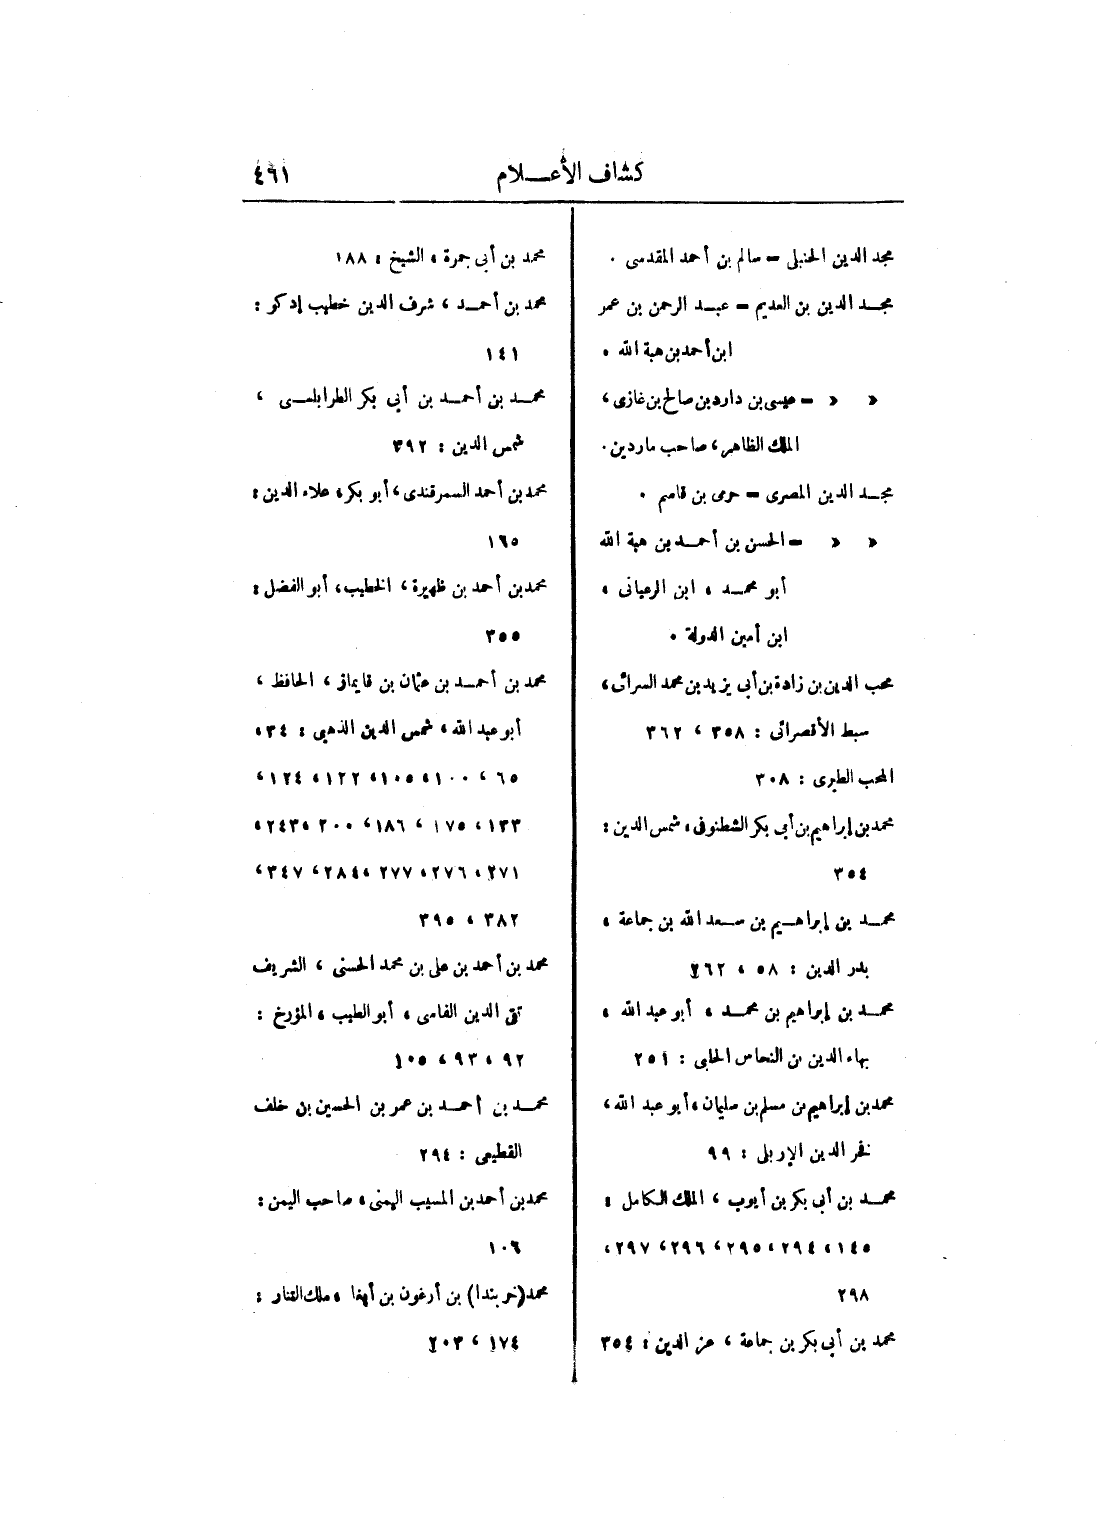 كشاف الأعـــلام
٤٦١
مجد الدين الحنبلى = سالم بن أحمد المقدسى .
مجـد الدين بن العديم = عبـد الرحمن بن عمر
ابن أحمد بن هبة الله .
» » = عيسى بن داود بن صالح بن غازى ،
الملك الظاهر ، صاحب ماردين .
مجـد الدين المصرى = حرمى بن قاسم .
» » = الحسن بن أحمـد بن هبة الله
أبو محمـد ، ابن الرعيانى ،
ابن أمين الدولة .
محب الدين بن زادة بن أبى يزيد بن محمد السرائى ،
سبط الأقصرائى : ٣٥٨ ، ٣٦٢
المحب الطبرى : ٣٠٨
محمد بن إبراهيم بن أبى بكر الشطنوفى ، شمس الدين :
٣٥٤
محمـد بن إبراهـيم بن سـعد الله بن جماعة ،
بدر الدين : ٥٨ ، ٢٦٢
محمـد بن إبراهيم بن محمـد ، أبو عبد الله ،
بهاء الدين بن النحاس الحلبى : ٢٥١
محمد بن إبراهيم بن مسلم بن سليمان ، أبو عبد الله ،
فخر الدين الإربلى : ٩٩
محمـد بن أبى بكر بن أيوب ، الملك الكامل :
١٤٥ ، ٢٩٤ ، ٢٩٥ ، ٢٩٦ ، ٢٩٧ ،
٢٩٨
محمد بن أبى بكر بن جماعة ، عز الدين : ٣٥٤
محمد بن أبى جمرة ، الشيخ : ١٨٨
محمد بن أحمـد ، شرف الدين خطيب إدكو :
١٤١
محمـد بن أحمـد بن أبى بكر الطرابلسـى ،
شمس الدين : ٣٩٢
محمد بن أحمد السمرقندى ، أبو بكر ، علاء الدين :
١٦٥
محمد بن أحمد بن ظهيرة ، الخطيب ، أبو الفضل :
٣٥٥
محمد بن أحمـد بن عثمان بن قايماز ، الحافظ ،
أبو عبد الله ، شمس الدين الذهبى : ٣٤ ،
٦٥ ، ١٠٠ ، ١٠٥ ، ١٢٢ ، ١٢٤ ،
١٣٣ ، ١٧٥ ، ١٨٦ ، ٢٠٠ ، ٢٤٣ ،
٢٧١ ، ٢٧٦ ، ٢٧٧ ، ٢٨٤ ، ٣٤٧ ،
٣٨٢ ، ٣٩٥
محمد بن أحمد بن على بن محمد الحسنى ، الشريف
تقى الدين الفاسى ، أبو الطيب ، المؤرخ :
٩٢ ، ٩٣ ، ١٠٥
محمـد بن أحمـد بن عمر بن الحسين بن خلف
القطيعى : ٢٩٤
محمد بن أحمد بن المسيب اليمنى ، صاحب اليمن :
١٠٦
محمد (خربندا) بن أرغون بن أبغا ، ملك التتار :
١٧٤ ، ٢٠٣